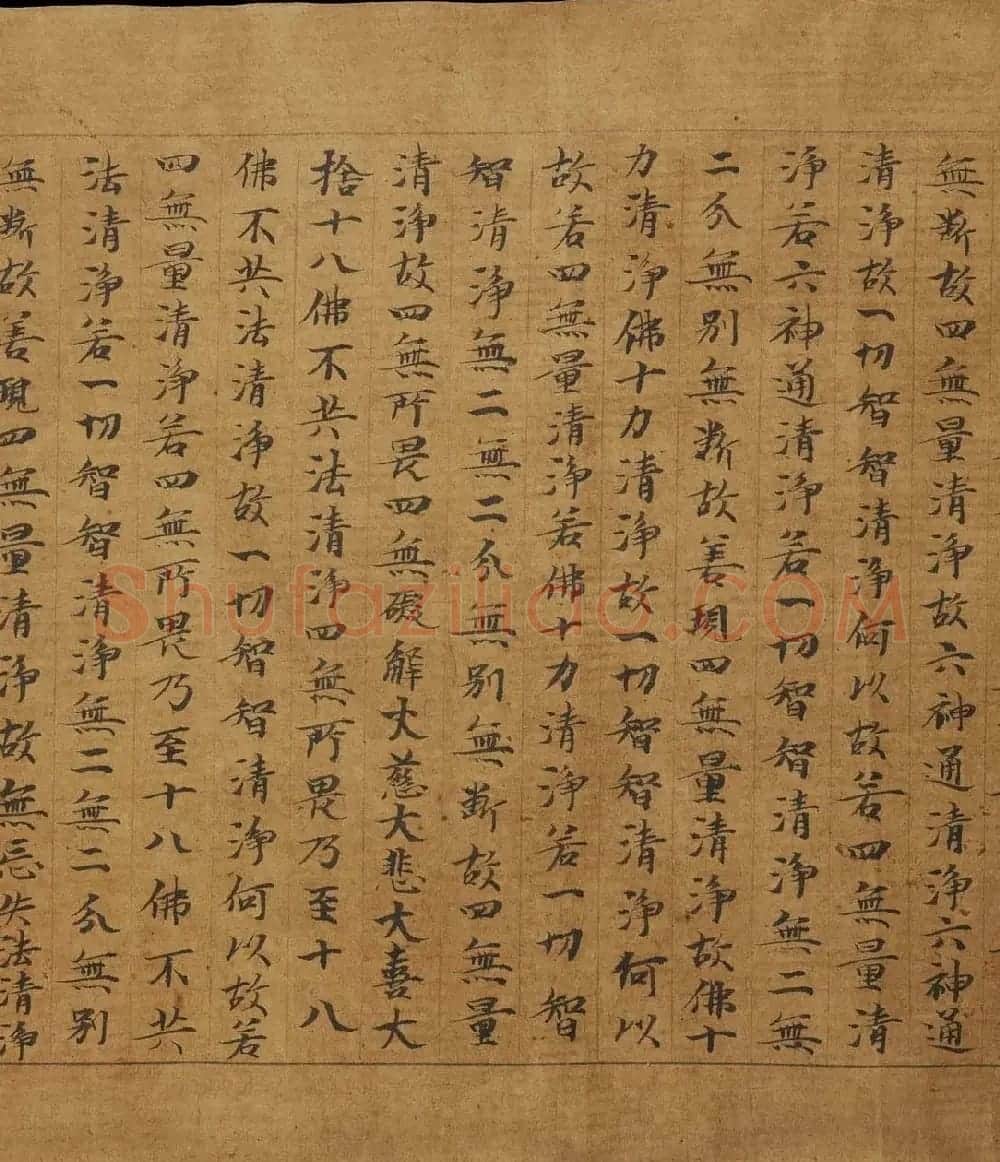 無斷故四無量清淨故六神通清淨六神通
清淨故一切智智清淨何以故若四無量清
淨若六神通清淨若一切智智清淨無二無
二分無別無斷故善現四無量清淨故佛十
力清淨佛十力清淨故一切智智清淨何以
故若四無量清淨若佛十力清淨若一切智
智清淨無二無二分無別無斷故四無量
清淨故四無所畏四無礙解大慈大悲大喜大
捨十八佛不共法清淨四無所畏乃至十八
佛不共法清淨故一切智智清淨何以故若
四無量清淨若四無所畏乃至十八佛不共
法清淨若一切智智清淨無二無二分無別
無斷故善現四無量清淨故無忘失法清淨
Shufaziliao.COM